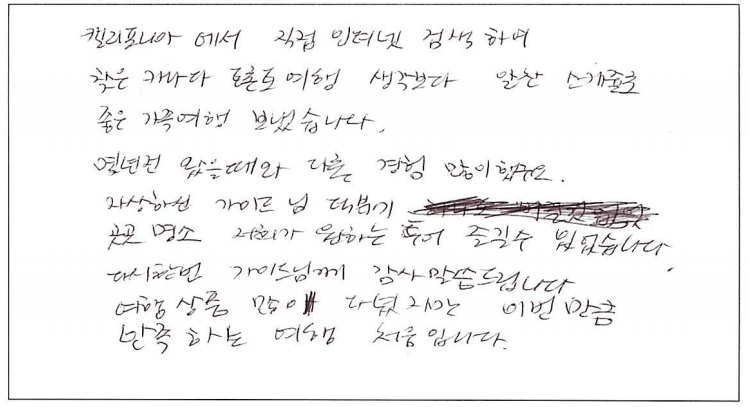 캘리포니아 에서 직접 인터넷 검색 하여
찾은 캐나다 토론토 여행 생각보다 알찬 스케줄로
좋은 가족여행 보냈습니다.
몇년전 왔을때와 다른 경험 많이했구요.
자상하신 가이드 님 덕분에
곳곳 명소 저희가 원하는 투어 즐길수 있었습니다.
다시한번 가이드님께 감사말씀드립니다
여행 상품 많이 다녔지만 이번 만큼
만족 하는 여행 처음 입니다.